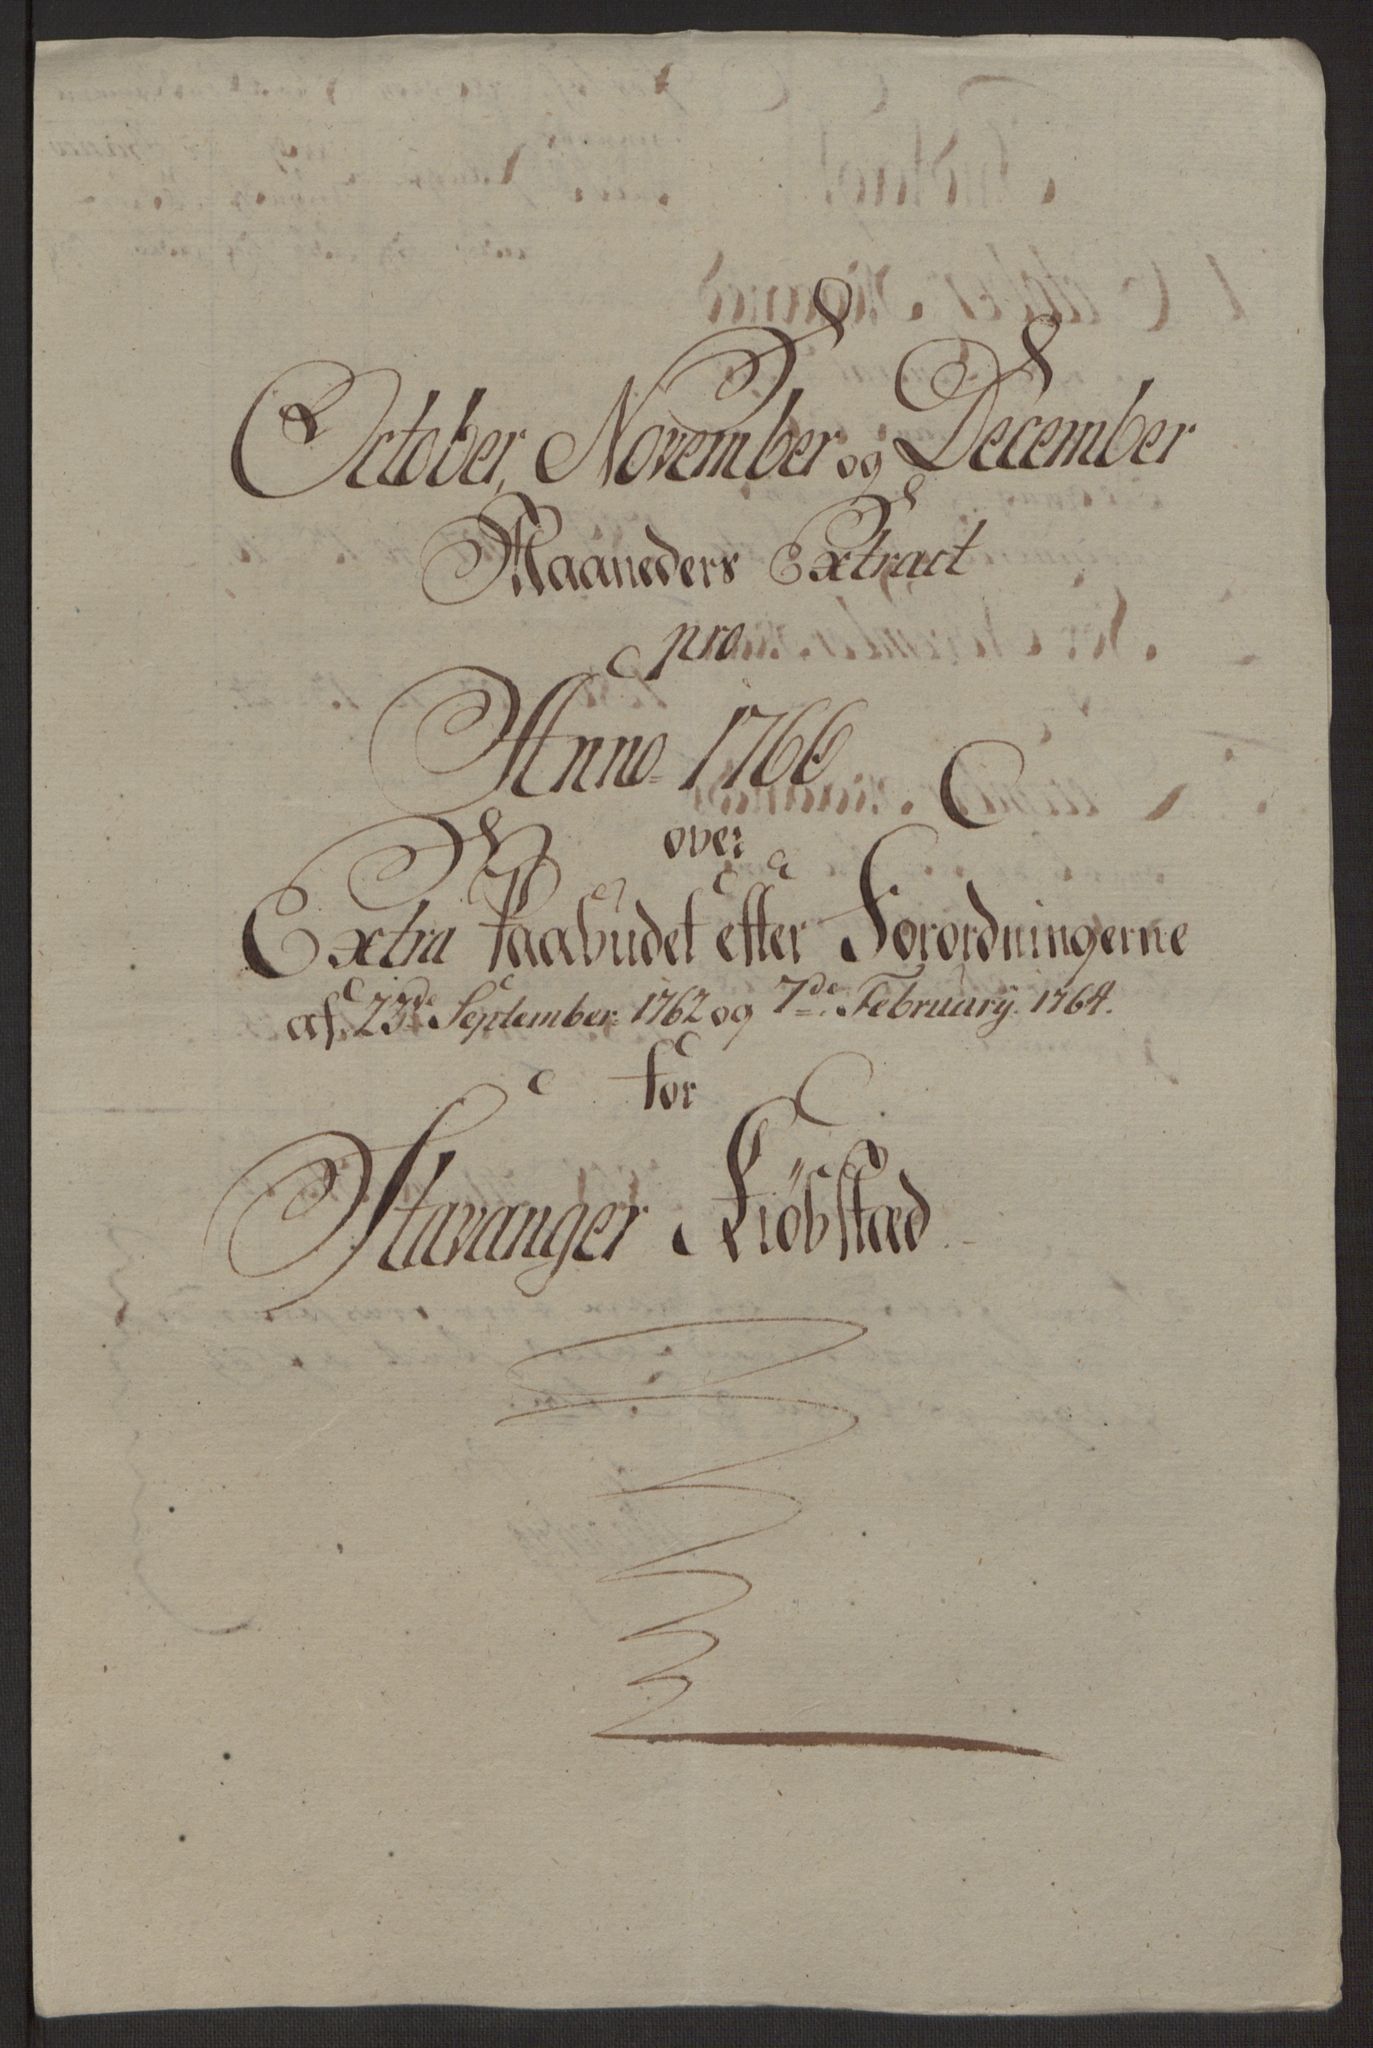 October, November og December
Maaneders Extract
pro
Anno 1766
over
Extra Paabudet efter Forordningerne
af 23de September 1762 og 7de February 1764.
for
Stavanger Kiöbstæd